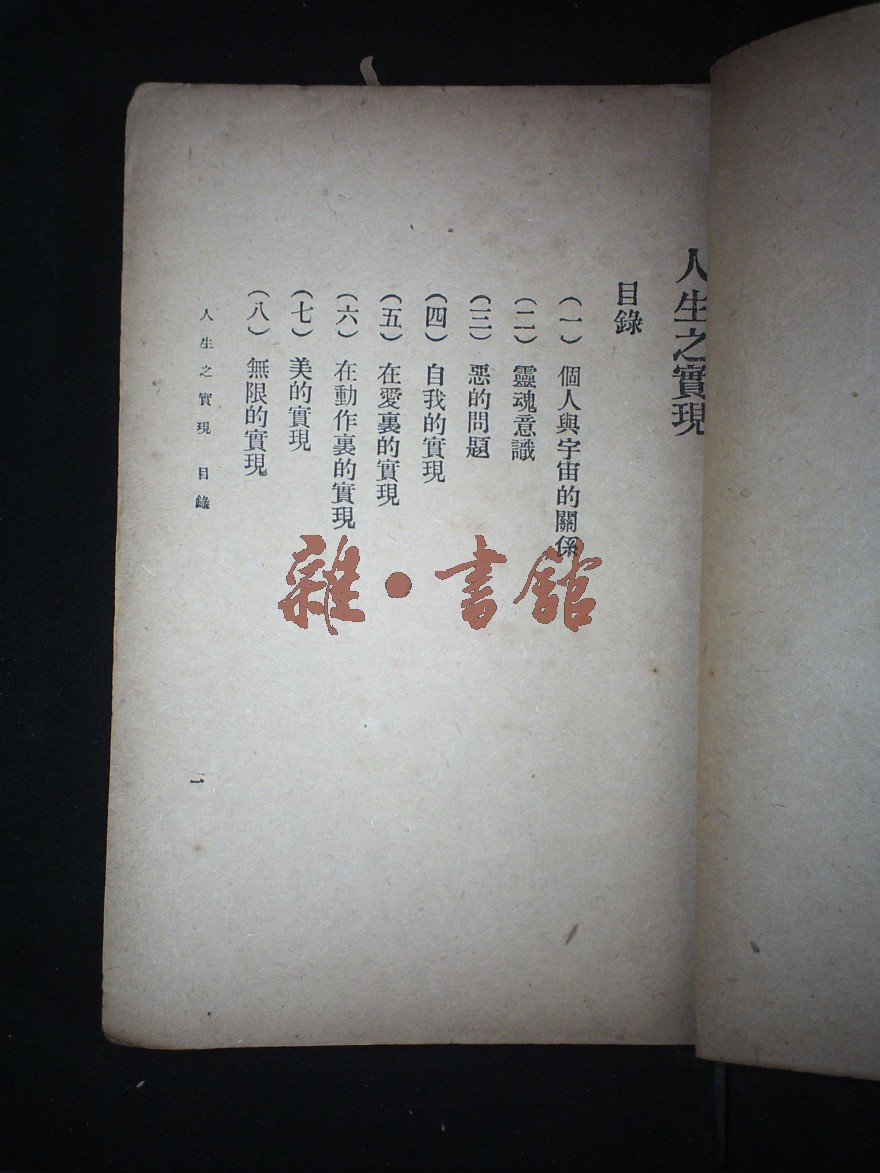 人生之實現
目錄
（一）個人與宇宙的關係
（二）靈魂意識
（三）惡的問題
（四）自我的實現
（五）在愛裏的實現
（六）在動作裏的實現
（七）美的實現
（八）無限的實現
人生之實現 目錄
一
雜·書館